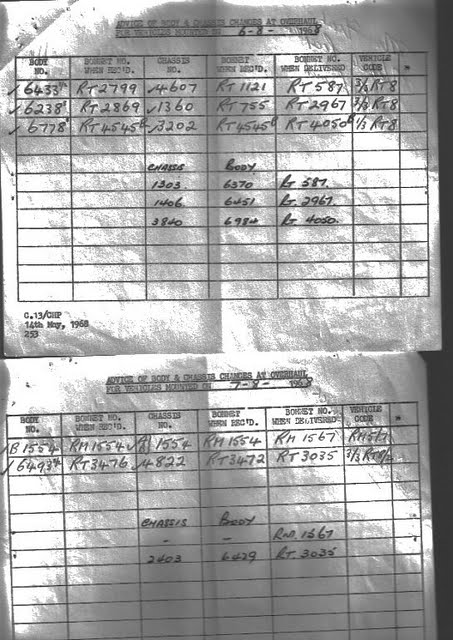 ADVICE OF BODY & CHASSIS CHANGES AT OVERHAUL
FOR VEHICLES MOUNTED ON 6-8- 1968
BODY NO. BONNET NO. WHEN REC'D. CHASSIS NO. BONNET WHEN REC'D. BONNET NO. WHEN DELIVERED VEHICLE CODE
✓6433 RT2799 ✓4607 RT1121 RT587 3/3 RT8
✓6238 RT2869 ✓1360 RT755 RT2967 3/3 RT8
✓6778 RT4545 ✓3202 RT4545 RT4050 RT8
CHASSIS BODY
1303 6370 RT 587.
1406 6451 RT 2967.
3840 6984 RT 4050.
C.13/CHP
14th May, 1968
253
ADVICE OF BODY & CHASSIS CHANGES AT OVERHAUL
FOR VEHICLES MOUNTED ON 7-8- 1968
BODY NO. BONNET NO. WHEN REC'D. CHASSIS NO. BONNET WHEN REC'D. BONNET NO. WHEN DELIVERED VEHICLE CODE
✓B1554 RM1554 ✓ 1554 RM1554 RM1567
✓6493 RT3476 ✓4822 RT3472 RT3035 3/3
CHASSIS BODY
- - RM. 1567
2403 6429 RT. 3035